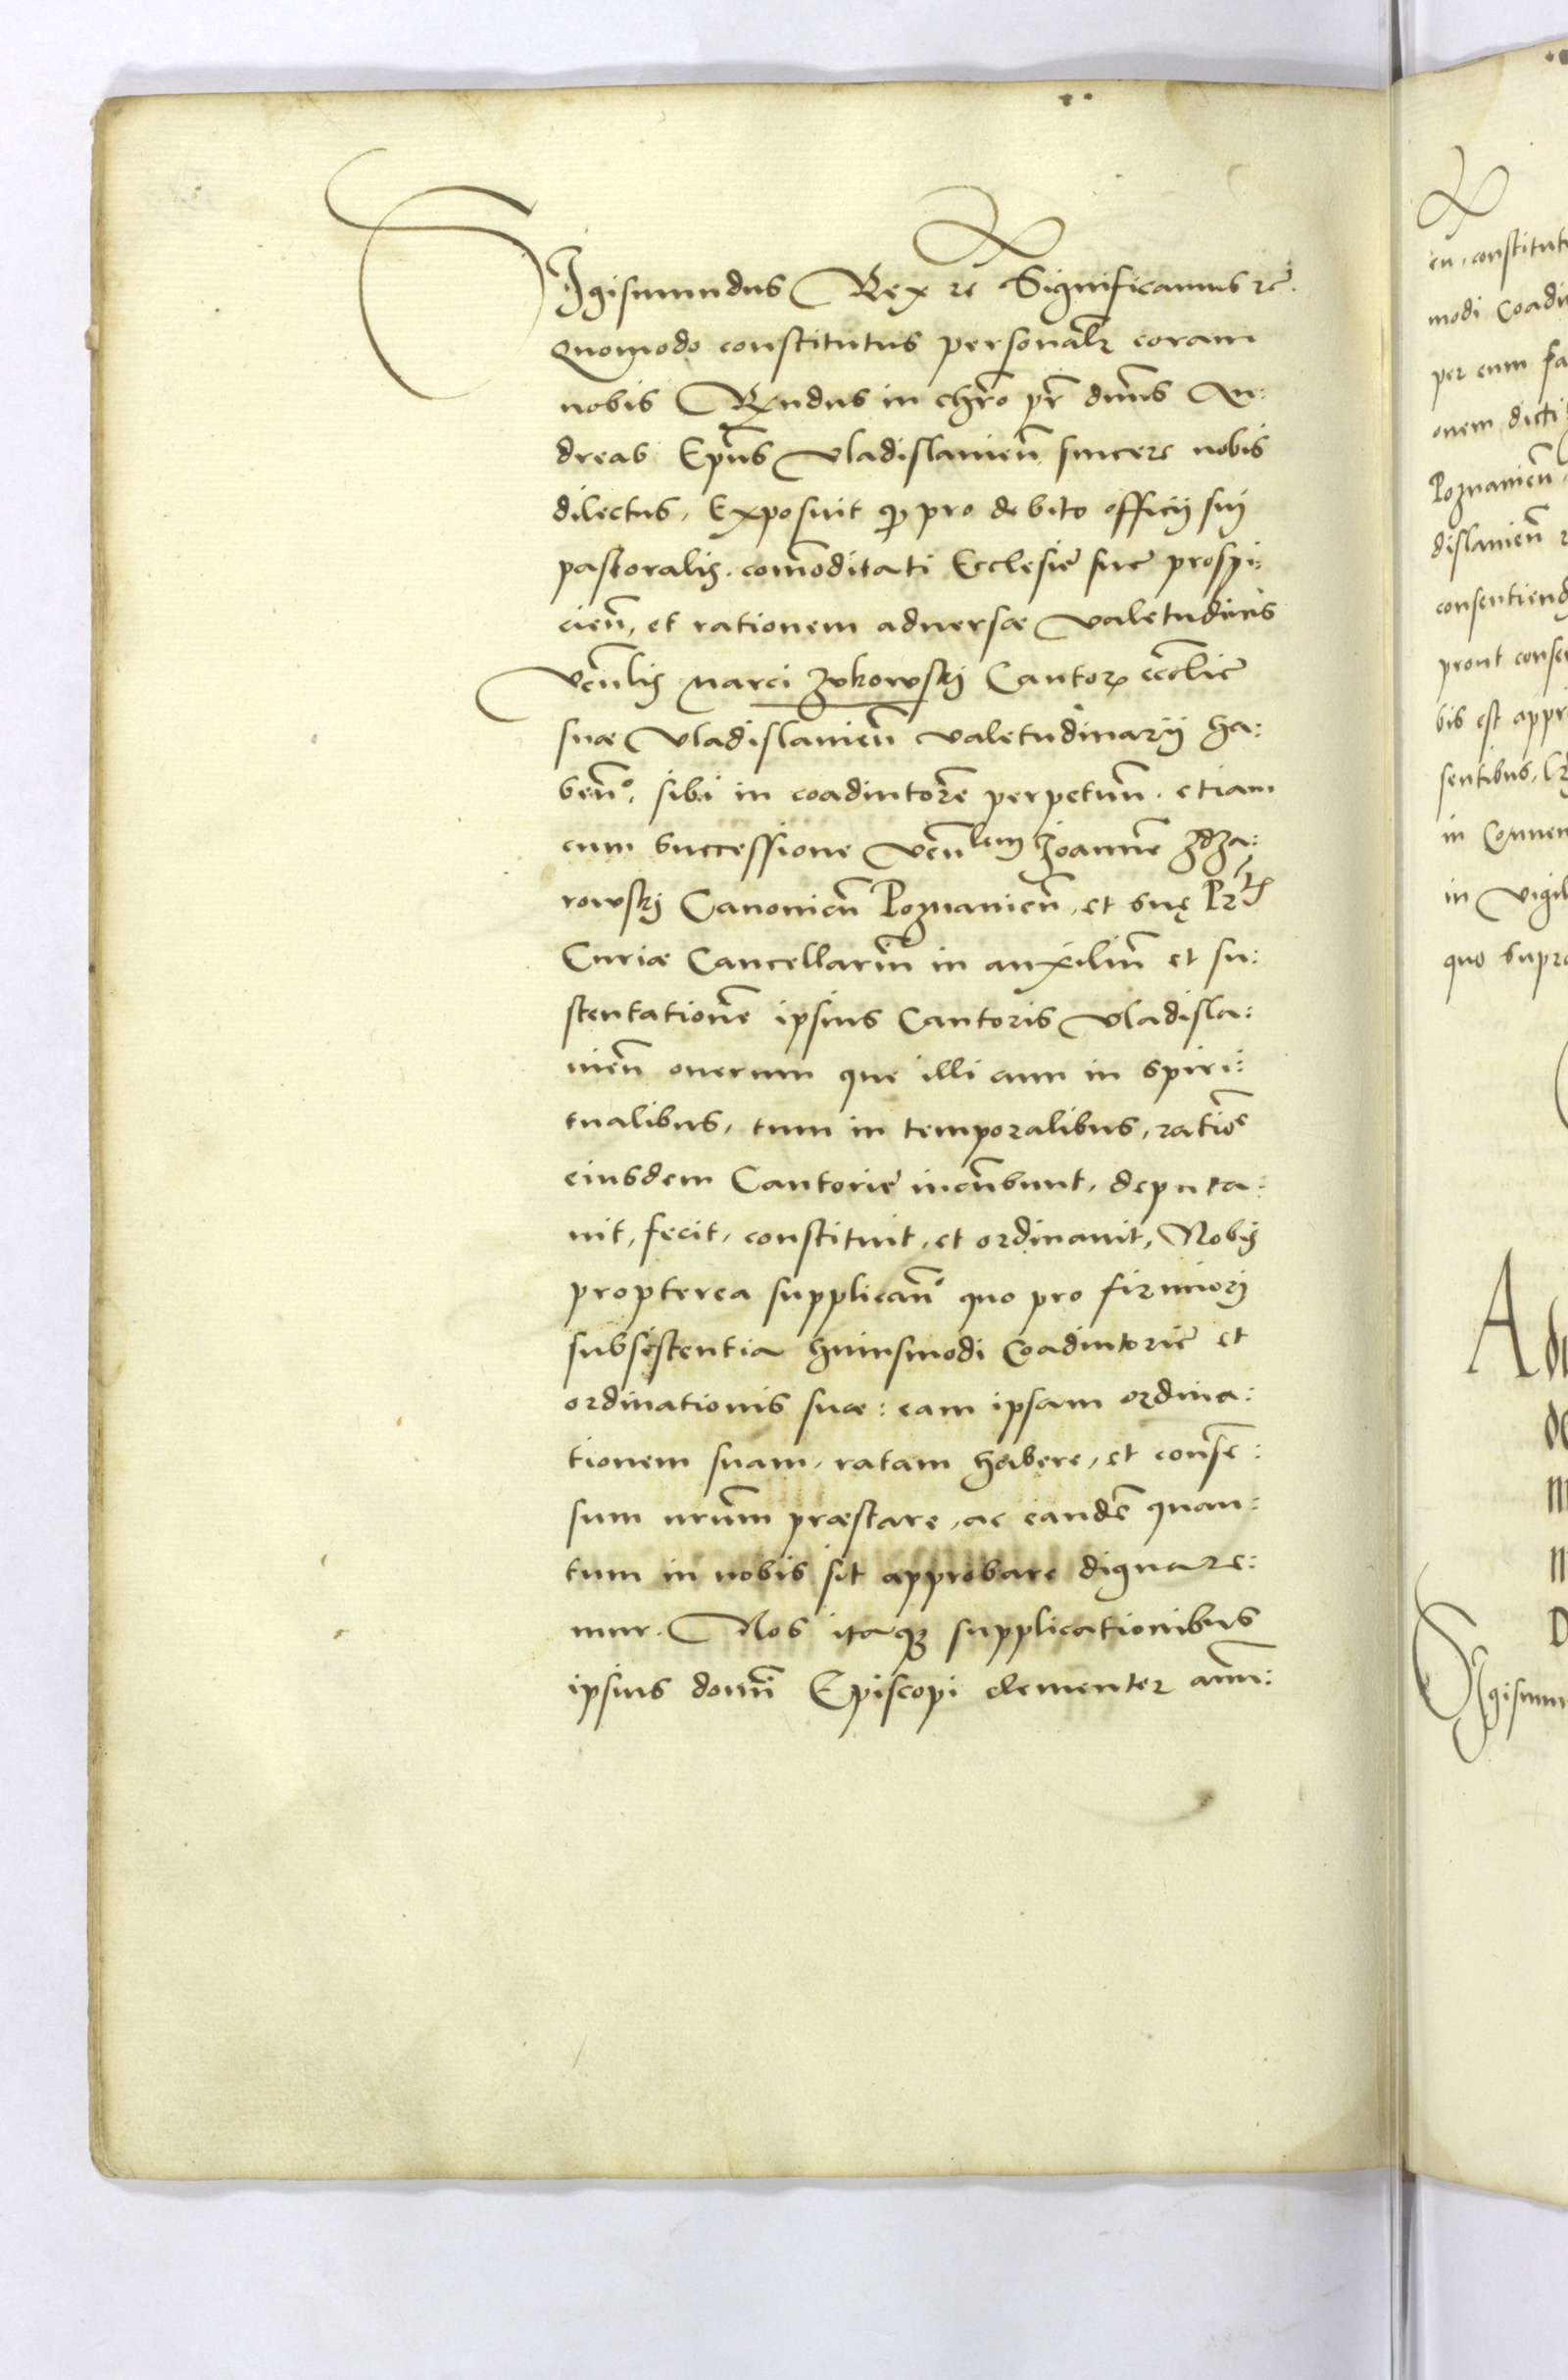 Sigismundus Rex ꝛc Significamus ꝛc.
Quomodo constitutus personalr coram
nobis Rxndus in chro pr dnns An:
dreas Epūs Vladislauien̄ sincere nobis
dilectus, Exposuit ꝙ pro debito officij sui
pastoralis. com̄oditati Ecclesie sue prospi:
cien̄, et rationem aduersæ valetudinis
Ven̄lis Marci Zukowskj Cantorꝭ eccl̄ie
suæ Vladislauien̄ valetudinarij ha:
ben̄º, sibi in coadiutorē perpetuū. etiam
cum successione Ven̄lem Joannē Zdza:
rowskj Canonicū Poznanien̄, et suę Prtis
Curiæ Cancellariū in auxiliū et su:
stentationē ipsius Cantoris Vladisla:
uien̄ onerum que illi cum in spiri:
tualibus, tum in temporalibus, ratiōe
eiusdem Cantorie incūbunt, deputa:
uit, fecit, constituit, et ordinauit, Nobis
propterea supplican̄º quo pro firmiori
subsistentia huiusmodi Coadiutorie et
ordinationis suæ: eam ipsam ordina:
tionem suam, ratam habere, et conse͂:
sum nrūm præstare, ac eandē quan:
tum in nobis sit approbare dignare:
mur. Nos itaqꝫ supplicationibus
ipsius domī Episcopi clementer ann:
en, constitut
modi Coadiu
per eum fa
onem dicti
Poznanien̄
dislauien̄
consentiend
prout conse
bis est appr
sentibus,
in Conuen
in vigil
quo supra
Sigismun